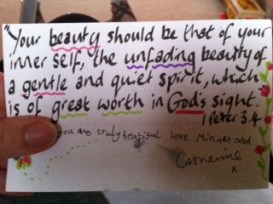 "Your beauty should be that of your
inner self, the unfading beauty of
a gentle and quiet spirit, which
is of great worth in God's sight.
1 Peter 3.4
you are truly beautiful Love and
Catherine
x